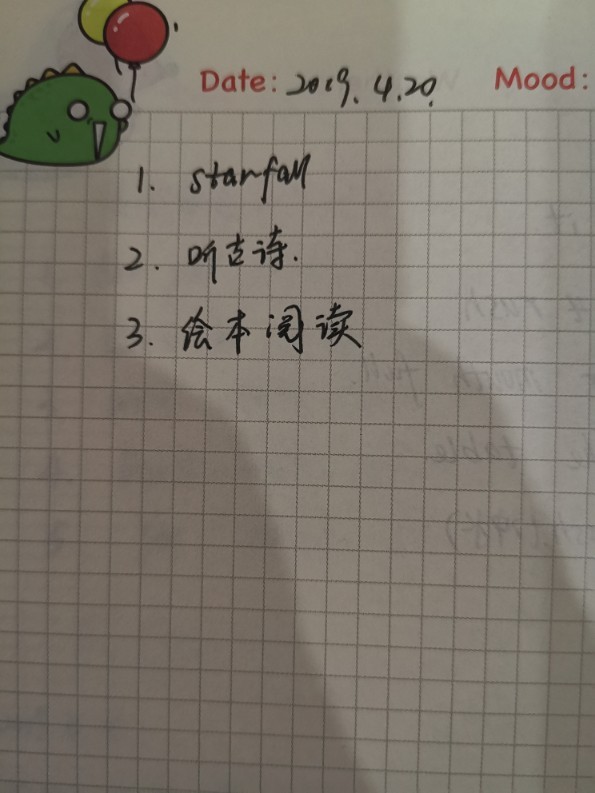 Date: 2019.4.20. Mood:
1. starfall
2. 听古诗.
3. 绘本阅读